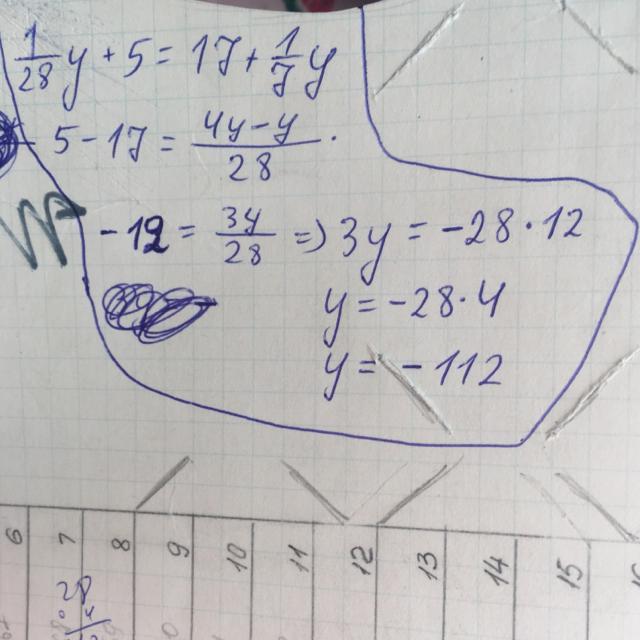 1/28 y + 5 = 17 + 1/7 y
5 - 17 = (4y - y)/28 .
-12 = 3y/28 => 3y = -28·12
y = -28·4
y = -112
6 7 8 9 10 11 12 13 14 15 16